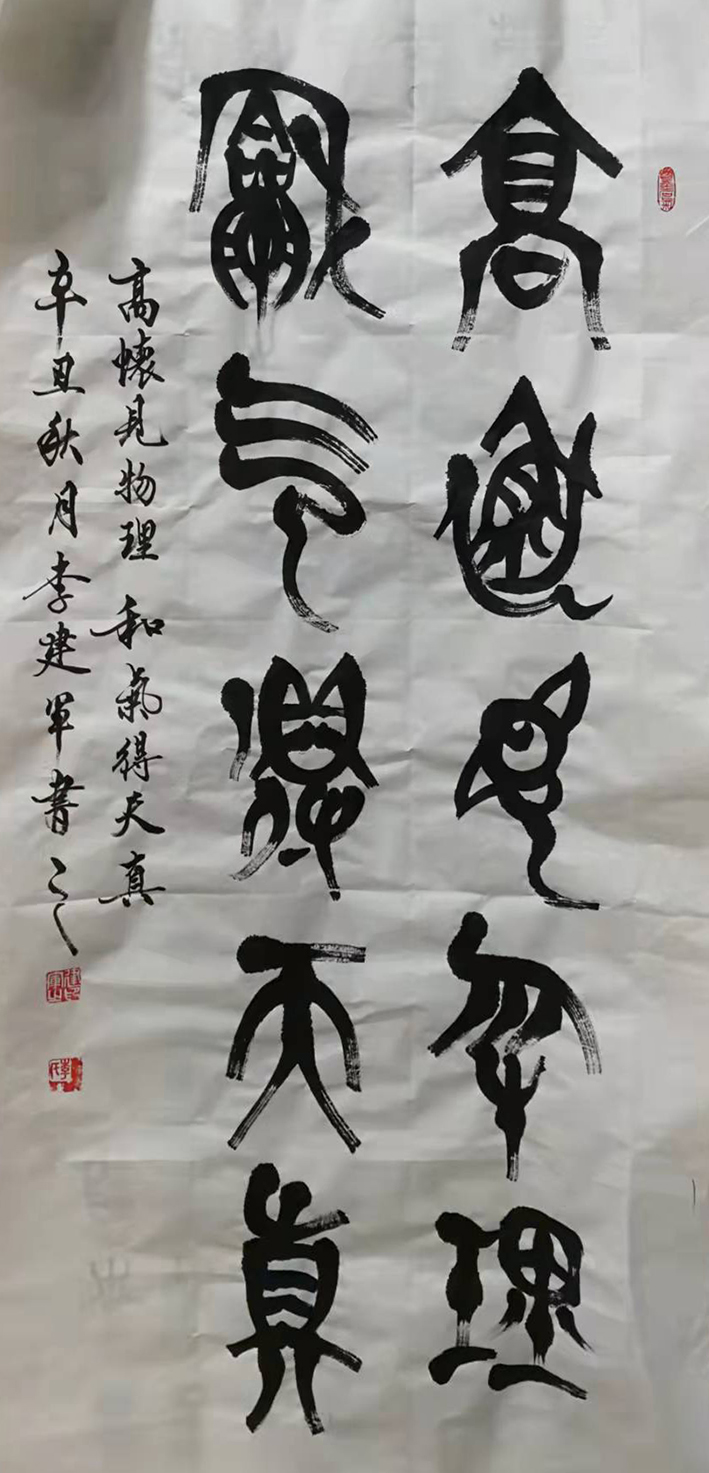 高懷見物理
龢气得天真
高懷見物理 和氣得天真
辛丑秋月李建軍書之